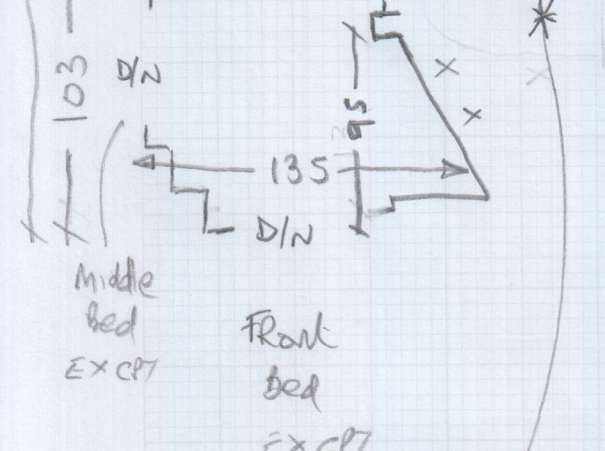 103
D/N
95
135
D/N
Middle
Bed
EX CPT
Front
Bed
EX CPT